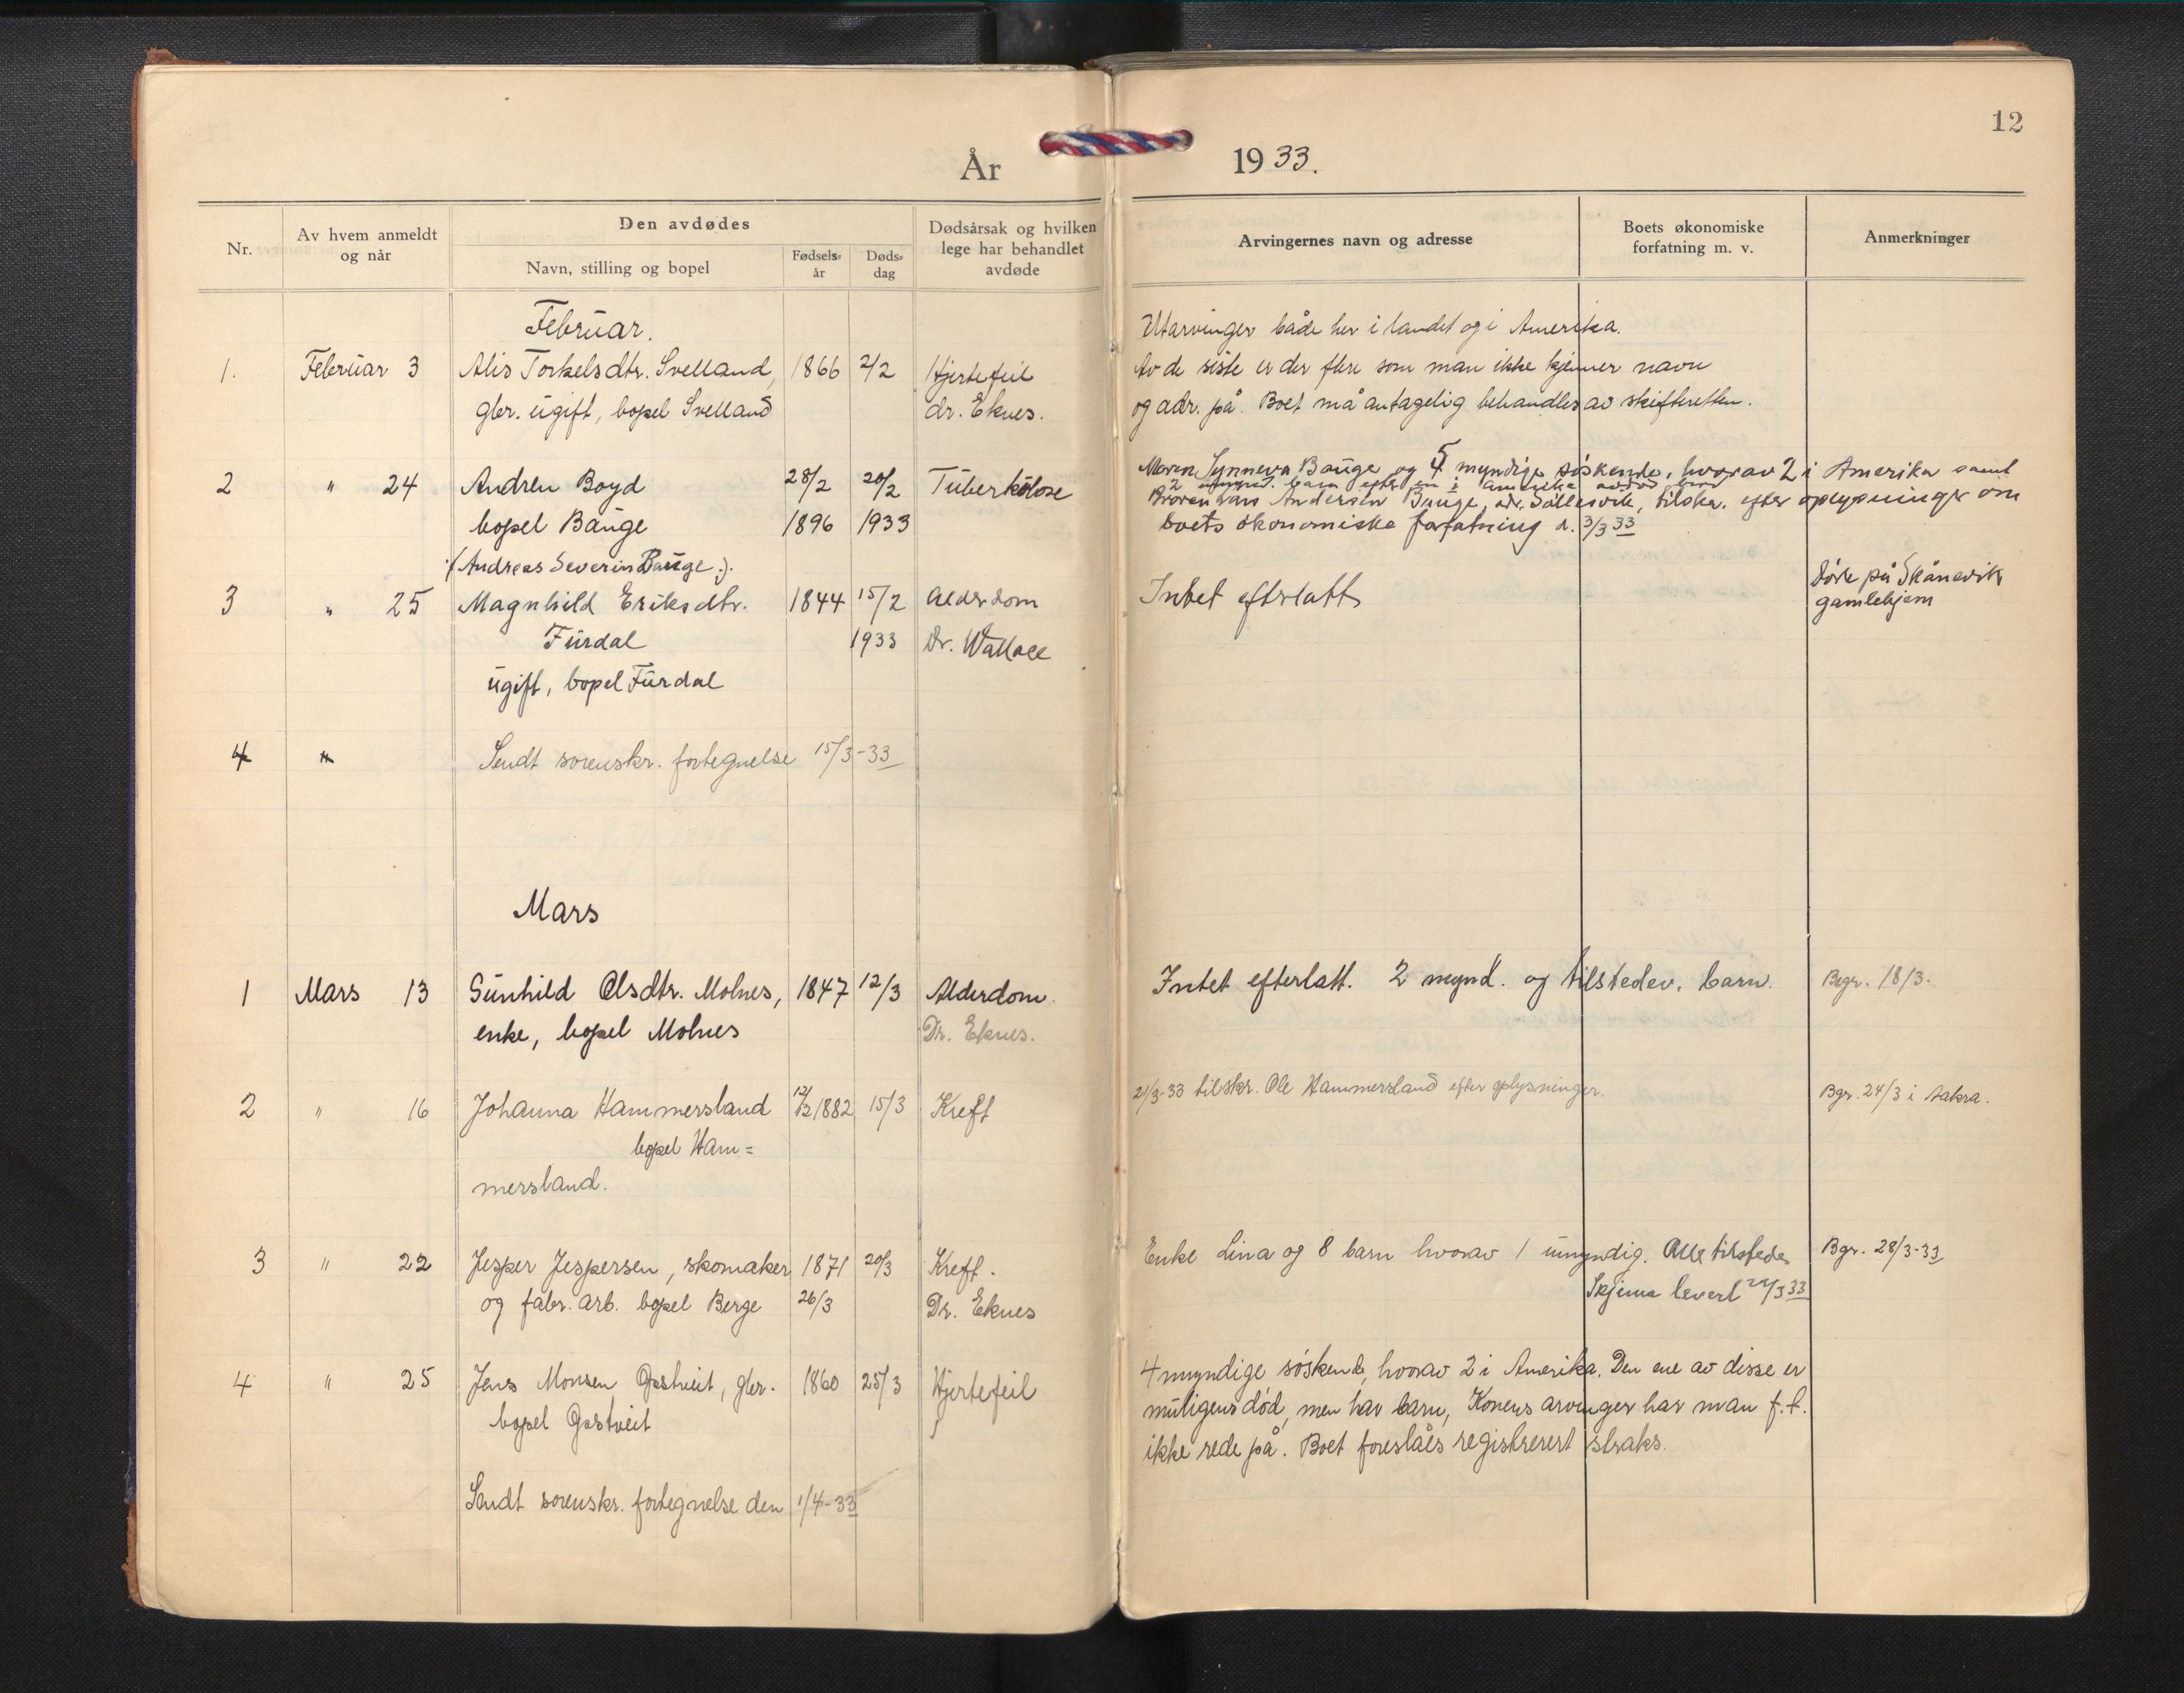 12
År 1933.
Nr.
Av hvem anmeldt
og når
Den avdødes
Navn, stilling og bopel
Fødsels-
år
Døds-
dag
Dødsårsak og hvilken
lege har behandlet
avdøde
Arvingernes navn og adresse
Boets økonomiske
forfatning m. v.
Anmerkninger
Februar.
Utarvinger både her i landet og i Amerika.
1. Februar 3 Alis Torkelsdtr. Svelland, 1866 2/2 Hjertefeil Av de siste er der flere som man ikke kjenner navn
gbr. ugift, bopel Svelland dr. Eknes. og adr. på. Boet må antagelig behandles av skifteretten.
2 " 24 Andrew Boyd 28/2 20/2 Tuberkulose Maren Synneva Bauge og 5 myndige søskende, hvorav 2 i Amerika samt
2 barn efter en i Amerika avdød bror
bopel Bauge 1896 1933 Broren Lars Andersen Bauge, adr. tilskr. efter oplysninger om
boets økonomiske forfatning d. 3/3 33
(Andreas Severin Bauge.)
3 " 25 Magnhild Eriksdtr. 1844 15/2 Alderdom Intet efterlatt Døde på Skånevik
gamlehjem
Furdal 1933 Dr. Wallace
ugift, bopel Furdal
4 " Sendt sorenskr. fortegnelse 15/3-33
Mars
1 Mars 13 Gunhild Olsdtr. Molnes, 1847 12/3 Alderdom. Intet efterlatt. 2 mynd. og tilstedev. barn. Begr. 18/3.
enke, bopel Molnes Dr. Eknes.
2 " 16 Johanna Hammersland 1882 15/3 Kreft 21/3-33 tilskr. Ole Hammersland efter oplysninger. Bgr. 24/3 i Aakra.
bopel Ham=
mersland.
3 " 22 Jesper Jespersen, skomaker 1871 20/3 Kreft. Enke Lina og 8 barn hvorav 1 umyndig. Alle tilstede Bgr. 28/3-33
og fabr. arb. bopel Berge 26/3 Dr. Eknes Skjema levert 22/3 33
4 " 25 Jens Monsen Gostveit, gbr. 1860 25/3 Hjertefeil 4 myndige søskende, hvorav 2 i Amerika. Den ene av disse er
bopel Gostveit muligens død, men har barn, Konens arvinger har man f.t.
ikke rede på. Boet foreslåes registrerert straks.
Sendt sorenskr. fortegnelse den 1/4-33